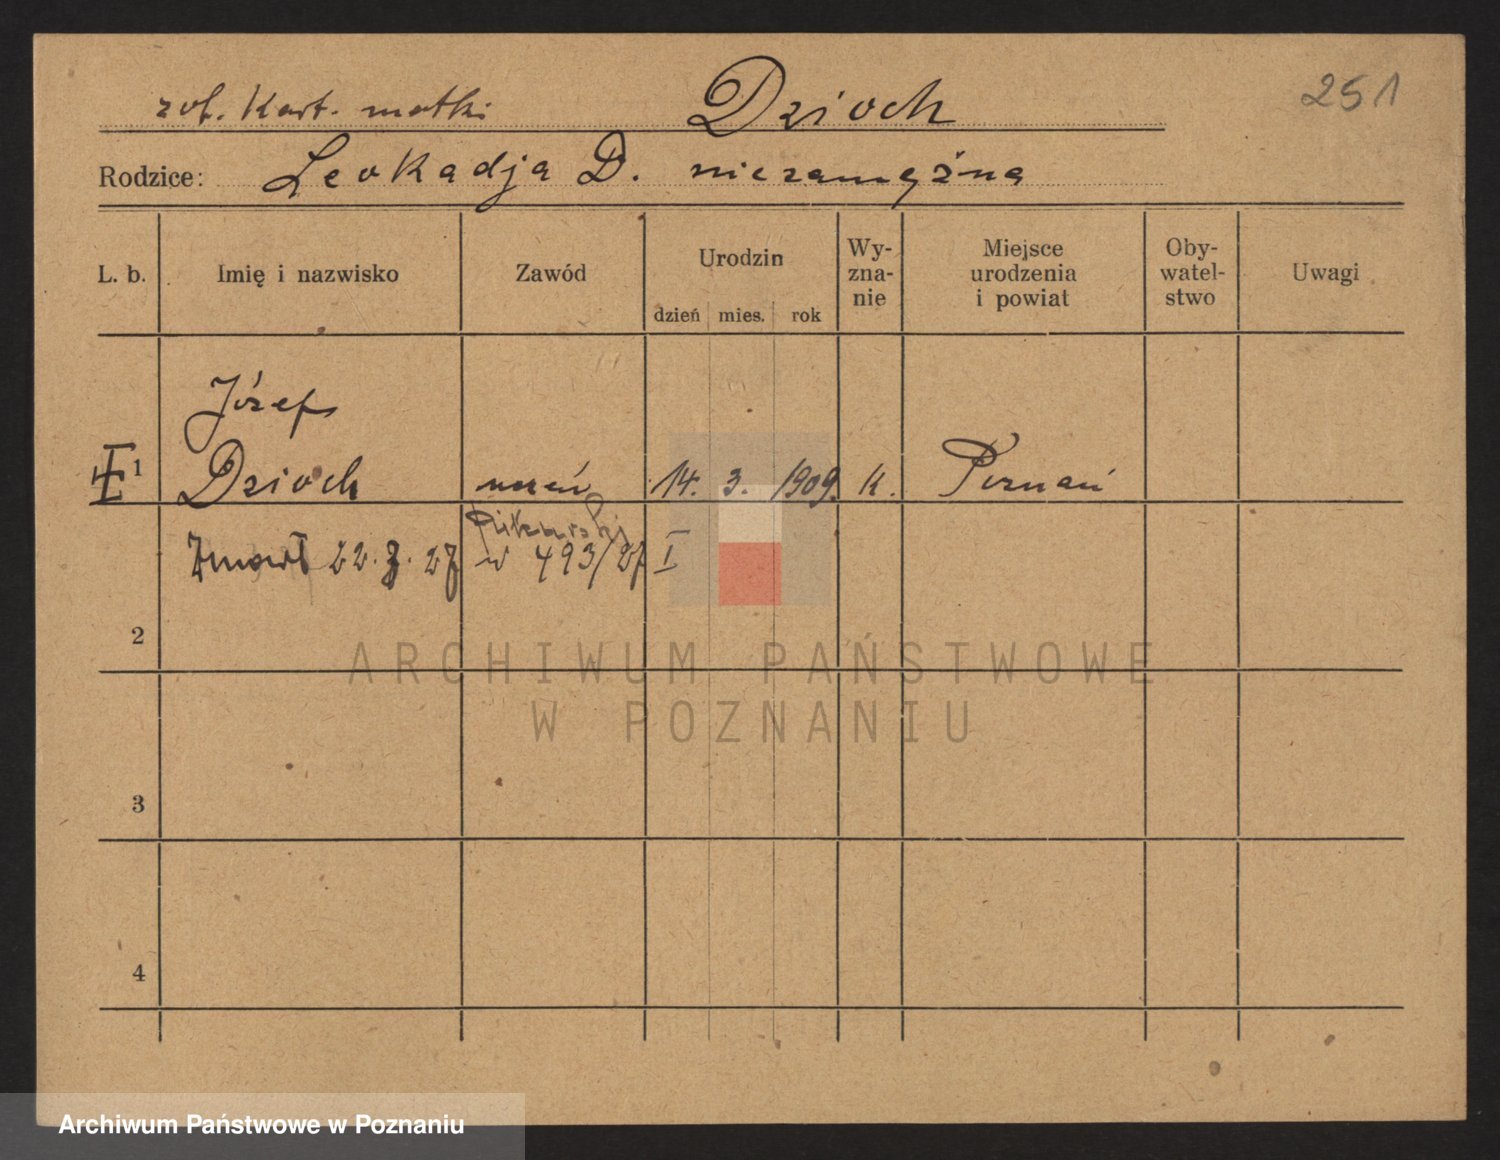 zob. Kart. matki Dzioch 251
Rodzice: Leokadja D. niezamężna
L. b. Imię i nazwisko Zawód Urodzin Wy-zna-nie Miejsce urodzenia i powiat Oby-watel-stwo Uwagi
dzień mies. rok
Józef
1 Dzioch uczeń 14. 3. 1909. k. Poznań
Zmarł 22. 7. 27 w 493/27 I
2
3
4
ARCHIWUM PAŃSTWOWE
W POZNANIU
Archiwum Państwowe w Poznaniu